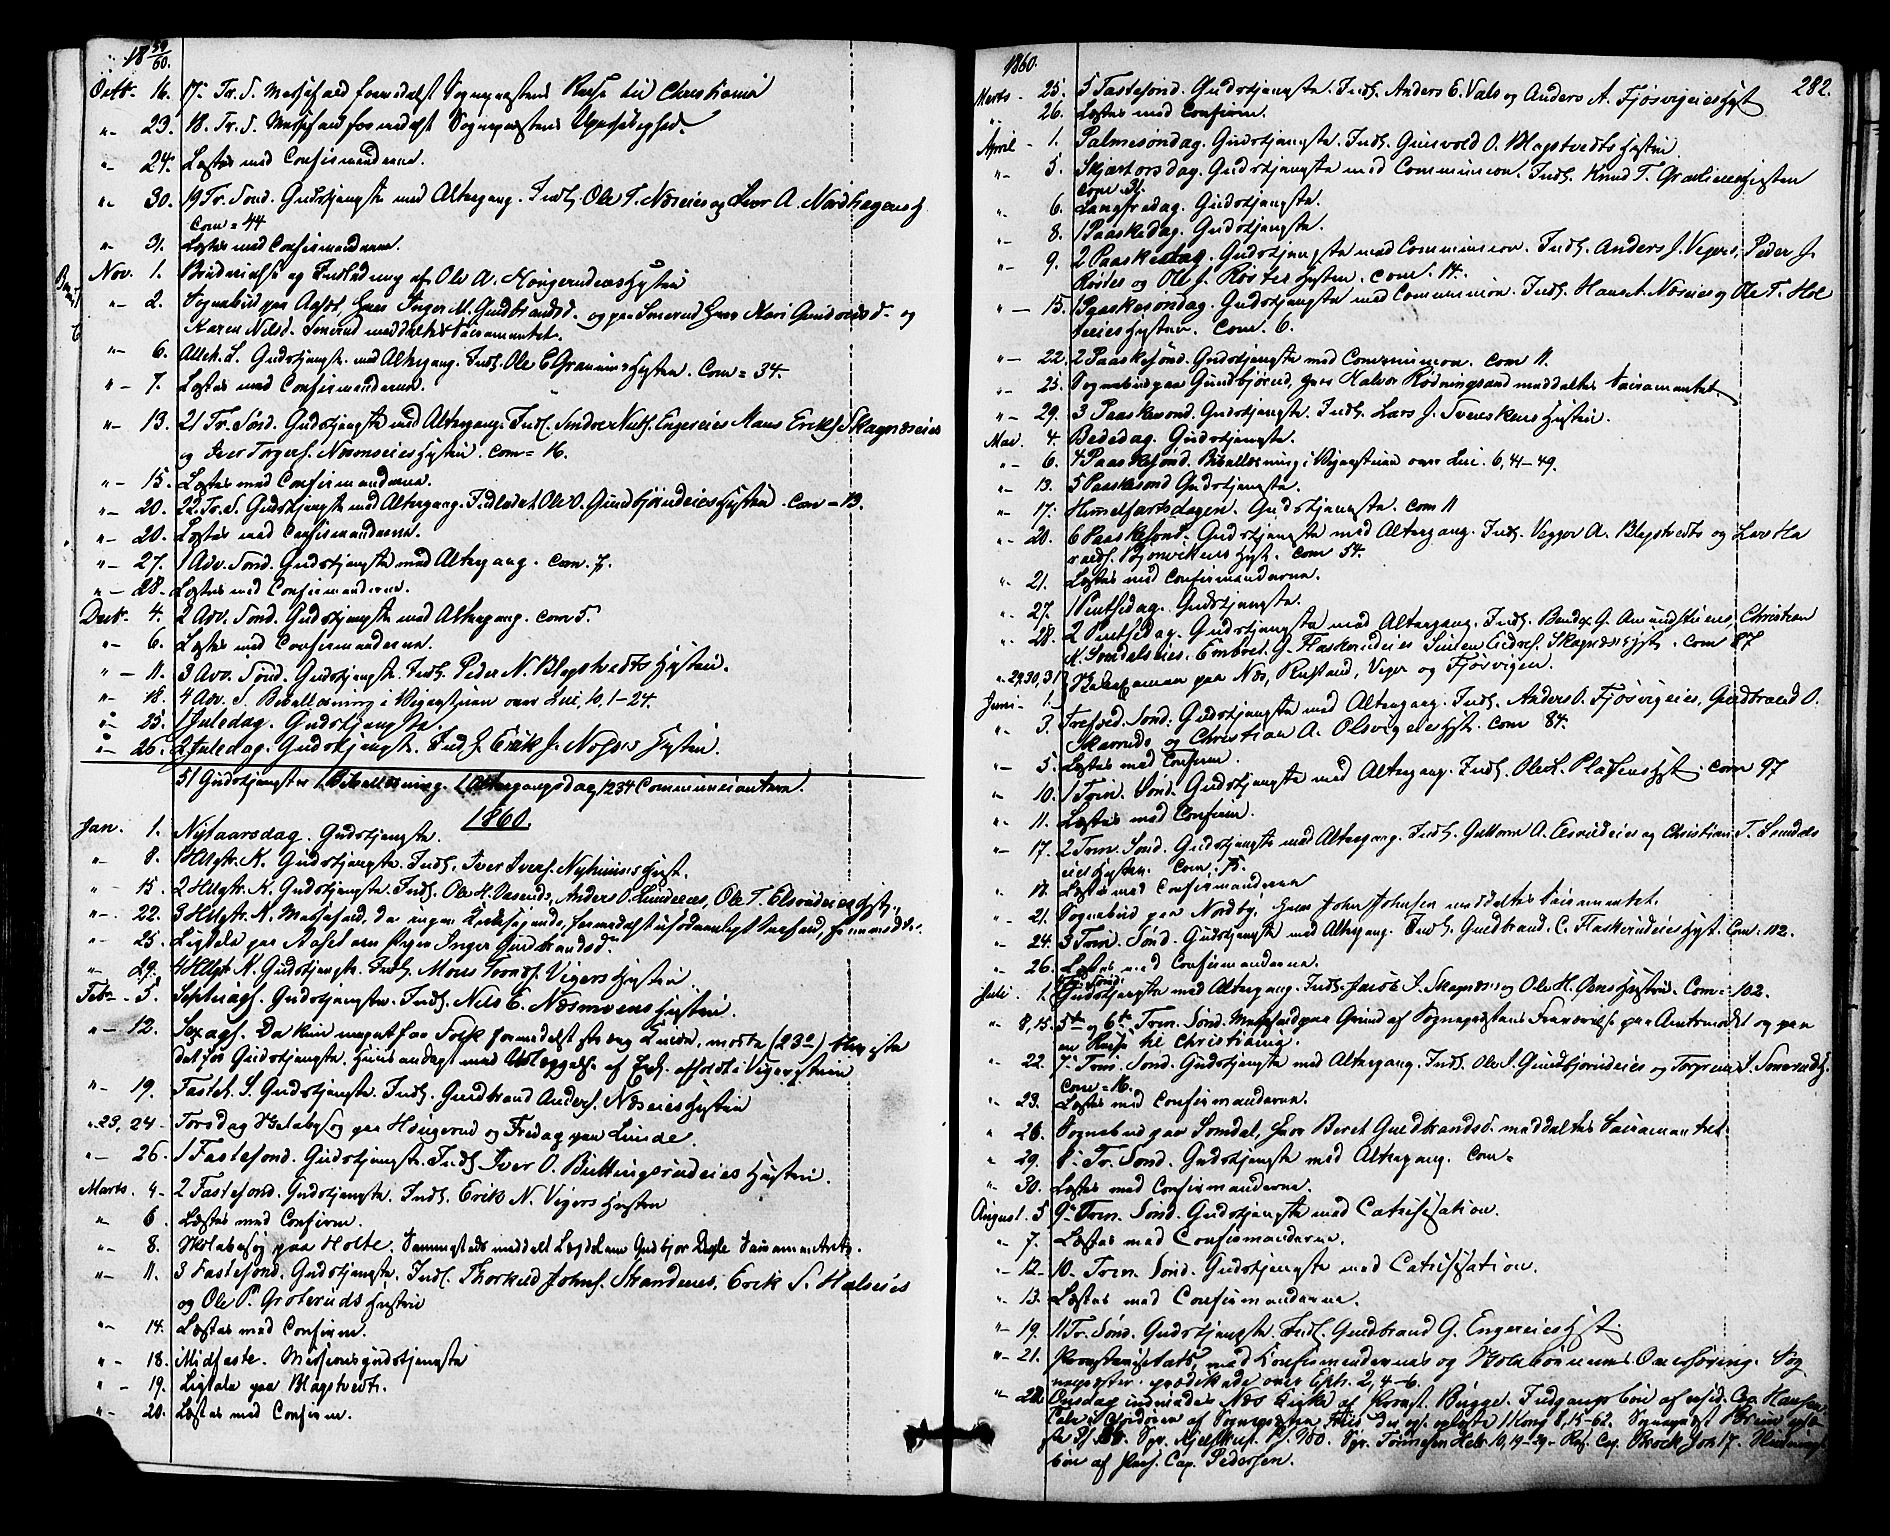 18 59/60.
Octb. 16. 17. Tr. S. Messefald formedelst Sognepræstens Reise til Christiania
"– 23. 18. Tr. S. Messefald formedelst Sognepræstens Upasselighed.
"– 24. Læstes med Confirmanderne.
"– 30. 19 Tr. Sond. Gudstjeneste med Altergang. Indl. Ole T. Næseies og Iver A. Nordhagens H.
Com = 44
"– 31. Læstes med Confirmanderne.
Nov. 1. Brudevielse og Indledning af Ole A. Haugerudeies Hustru
"– 2. Sognebud paa Aaset hvor Inger M. Gudbrandsd. og paa Smerud hvor Mari Gundersd. og
Karen Nilsd. Smerud meddeltes Sacramentet.
"– 6. Alleh. S. Gudstjeneste med Altergang. Indl. Ole E. Hustru. Com = 34.
"– 7. Læstes med Confirmanderne.
"– 13. 21 Tr. Sond. Gudstjeneste med Altergang. Indl. Sindre Engereies Hans Eriks. Skagnæseies
og Iver Torgers. Hustru. Com = 16.
"– 15. Læstes med Confirmanderne.
"– 20. 22. Tr. S. Gudstjeneste med Altergang. Indledet Ole O. Gundbjørudeies Hustru. Com = 13.
"– 20. Læstes med Confirmanderne.
"– 27. 1 Adv. Sond. Gudstjeneste med Altergang. Com. 7.
"– 28. Læstes med Confirmanderne.
Decb. 4. 2 Adv. Sond. Gudstjeneste med Altergang. Com 5.
"– 6. Læstes med Confirmanderne.
"– 11. 3 Adv. Sond. Gudstjeneste. Indl. Peder N. Blegstvedts Hustru.
"– 18. 4 Adv. S. Bibellæsning i Vigerstuen over Luc. 10, 1–24.
"– 25. 1 Juledag. Gudstjeneste.
"– 26. 2 Juledag. Gudstjeneste. Indl. Erik J. Hustru.
51 Gudstjenester 1 Bibellæsning. Altergangsdag 1234 Communicantere.
1860.
Jan. 1. Nytaarsdag. Gudstjeneste.
"– 8. 1 Helligtr. K. Gudstjeneste. Indl. Iver Ivers. Nyhuuses Hust.
"– 15. 2 Helligtr. K. Gudstjeneste. Indl. Ole H. Anders O. Lundeies, Ole T. Elsrudeies Hust.
"– 22. 3 Helligtr. K. Messefald, da ingen Kirkesøgende, formedelst usædvanligt Snefald, fremmødte.
"– 25. Ligtale paa Aaset over Pigen Inger Gudbrandsd.
"– 29. 4 Helligtr. K. Gudstjeneste. Indl. Mons Tronds. Vigers Hustru.
Febr. 5. Septuag. Gudstjeneste. Indl. Nils E. Næsmoens Hustru.
"– 12. Sexag. Da kun meget faa Folk formedelst streng Kulde, mødte (23°) blev ikke
det før Gudstjeneste. Huusandagt med Udlæggelse af Ev. afholdt i Vigerstuen
"– 19. Fastel. S. Gudstjeneste. Indl. Gudbrand Anders. Næseies Hustru
"– 23, 24. Torsdag Skolebesøg paa Haugerud og Fredag paa Lunde.
"– 26. 1 Fastesond. Gudstjeneste. Indl. Iver O. Buttingsrudeies Hustru.
Marts. 4. 2 Fastesond. Gudstjeneste. Indl. Erik N. Vegers Hustru
"– 6. Læstes med Confirm.
"– 8. Skolebesøg paa Holte. Sammesteds meddelt Lægdslem Gudbjør Sacramentet.
"– 11. 3 Fastesond. Gudstjeneste. Indl. Thorkild Johns. Strandenes, Erik S. Halseies
og Ole P. Groteruds Hustru
"– 14. Læstes med Confirm.
"– 18. Midfaste. Missionsgudstjeneste
"– 19. Ligtale paa Blegstvedt.
"– 20. Læstes med Confirm.
1860.
282.
Marts – 25. 5 Fastesond. Gudstjeneste. Indl. Anders E. Vals og Anders A. Fjøsvigeies Hust
26. Læstes med Confirm.
April – 1. Palmesøndag. Gudstjeneste. Indl. Gunvold O. Blegstvedts Hustru
"– 5. Skjærtorsdag. Gudstjeneste med Communion. Indl. Knud T. Hustru
Com 31.
"– 6. Langfredag. Gudstjeneste.
"– 8. 1 Paaskedag. Gudstjeneste.
"– 9. 2 Paaskedag. Gudstjeneste med Communion. Indl. Anders J. Vegers, Peder J.
Røstes og Ole J. Røstes Hustru. Com. 14.
"– 15. 1 Paaskesøndag. Gudstjeneste med Communion. Indl. Hans A. Næseies og Ole T. Hol
teeies Hustru. Com. 6.
"– 22. 2 Paaskesond. Gudstjeneste med Communion. Com 11.
"– 25. Sognebud paa Gundbjørud, hvor Halvor Rødningsand meddeltes Sacramentet.
"– 29. 3 Paaskesond. Gudstjeneste. Indl. Lars J. Hustru.
Mai. 4. Bededag. Gudstjeneste.
"– 6. 4 Paaskesond. Bibellæsning i Vigerstuen over Luc. 6, 41–49.
"– 13. 5 Paaskesond Gudstjeneste.
"– 17. Himmelfartsdagen. Gudstjeneste. Com 11
"– 20. 6 Paaskesond. Gudstjeneste med Altergang. Indl. Vegger A. Blegstvedts og Lars Ha
ralds. Hust. Com 54.
"– 21. Læstes med Confirmanderne.
"– 27. 1 Pintsedag. Gudstjeneste.
"– 28. 2 Pintsedag. Gudstjeneste med Altergang. Indl. Bendix G. Christian
K. Somdalseies, Embret G. Flaskerudeies Simen Skagnæs Hust. Com 87
"– 29, 30, 31 } Skoleexamen paa Næs, Rustand, Veger og Fjøsvigen.
Juni – 1 }
"– 3. Trefold. Sond. Gudstjeneste med Altergang. Indl. Anders O. Fjøsvigeies, Gudbrand O.
Skarruds og Christian A. Olsvigeies Hust. Com 84.
"– 5. Læstes med Confirm.
"– 10. 1 Trin. Sønd. Gudstjeneste med Altergang. Indl. Ole L. Pladsens Hust. Com 97
"– 11. Læstes med Confirm.
"– 17. 2 Trin. Sond. Gudstjeneste med Altergang. Indl. Guttorm A. Elsrudeies og Christian T.
eies Hustru. Com. 75.
"– 18. Læstes med Confirmanderne
"– 21. Sognebud paa Nordby, hvor John Johnsen meddeltes Sacramentet.
"– 24. 3 Trin. Sønd. Gudstjeneste med Altergang. Indl. Gudbrand C. Flaskerudeies Hust. Com. 112.
"– 26. Læstes med Confirmanderne.
4 Tr. Sond.
Juli. 1. Gudstjeneste med Altergang. Indl. Jacob S. Skagnæs og Ole H. Hustru. Com = 102.
"– 8, 15. 5te og 6te Trin. Sønd. Messefald paa Grund af Sognepræstens Fraværelse paa Amtsmødet og paa
en Reise til Christiania.
"– 22. 7. Trin. Sond. Gudstjeneste med Altergang. Indl. Ole S. Gundbjørudeies og Torger S. Smeruds H.
Com = 16.
"– 23. Læstes med Confirmanderne.
"– 26. Sognebud paa Somdal, hvor Beret Gudbrandsd. meddeltes Sacramentet.
"– 29. 8. Tr. Sond. Gudstjeneste med Altergang. Com =
"– 30. Læstes med Confirmanderne.
August. 5. 9. Trin. Sond. Gudstjeneste med Catechisation.
"– 7. Læstes med Confirmanderne.
"– 12. 10. Trin. Sond. Gudstjeneste med Catechisation.
"– 13. Læstes med Confirmanderne.
"– 19. 11 Tr. Sønd. Gudstjeneste. Indl. Gudbrand G. Engereies Hust.
"– 21. Provstevisitats, med Confirmandernes og Skolebørnenes Overhøring. Sog
nepræsten prædikede over Eph. 2, 4–6.
"– 22. Onsdag indviedes Næs Kirke af Provst Bugge. Indgangsbøn af resid. Cap. Hansen.
Tale i Chordøren af Sognepræsten der ogs. oplæste 1 Kong. 8, 15–62. Sognepræst oplæ
ste Ps. Spr. Kjelstrup. Ps. 100. Spr. Tønnesen Hebr. 10, 19–29. Res. Cap. Brock Joh. 17.
bøn af Pers. Cap. Pedersen.